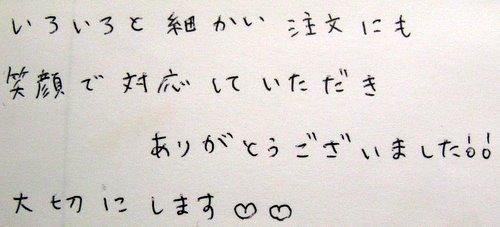 いろいろと細かい注文にも
笑顔で対応していただき
ありがとうございました!!
大切にします♡♡